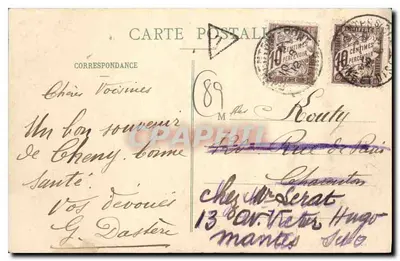 CARTE POSTALE
CORRESPONDANCE
T
10 CENTIMES A PERCEVOIR
10 CENTIMES A PERCEVOIR
Chères Voisines
Un bon souvenir
de Cheny. bonne
santé.
Vos dévoués
G. Dastère
89
M elles Routy
Rue de Paris
Charenton
chez Mr Serat
13 av. Victor Hugo
mantes S&O